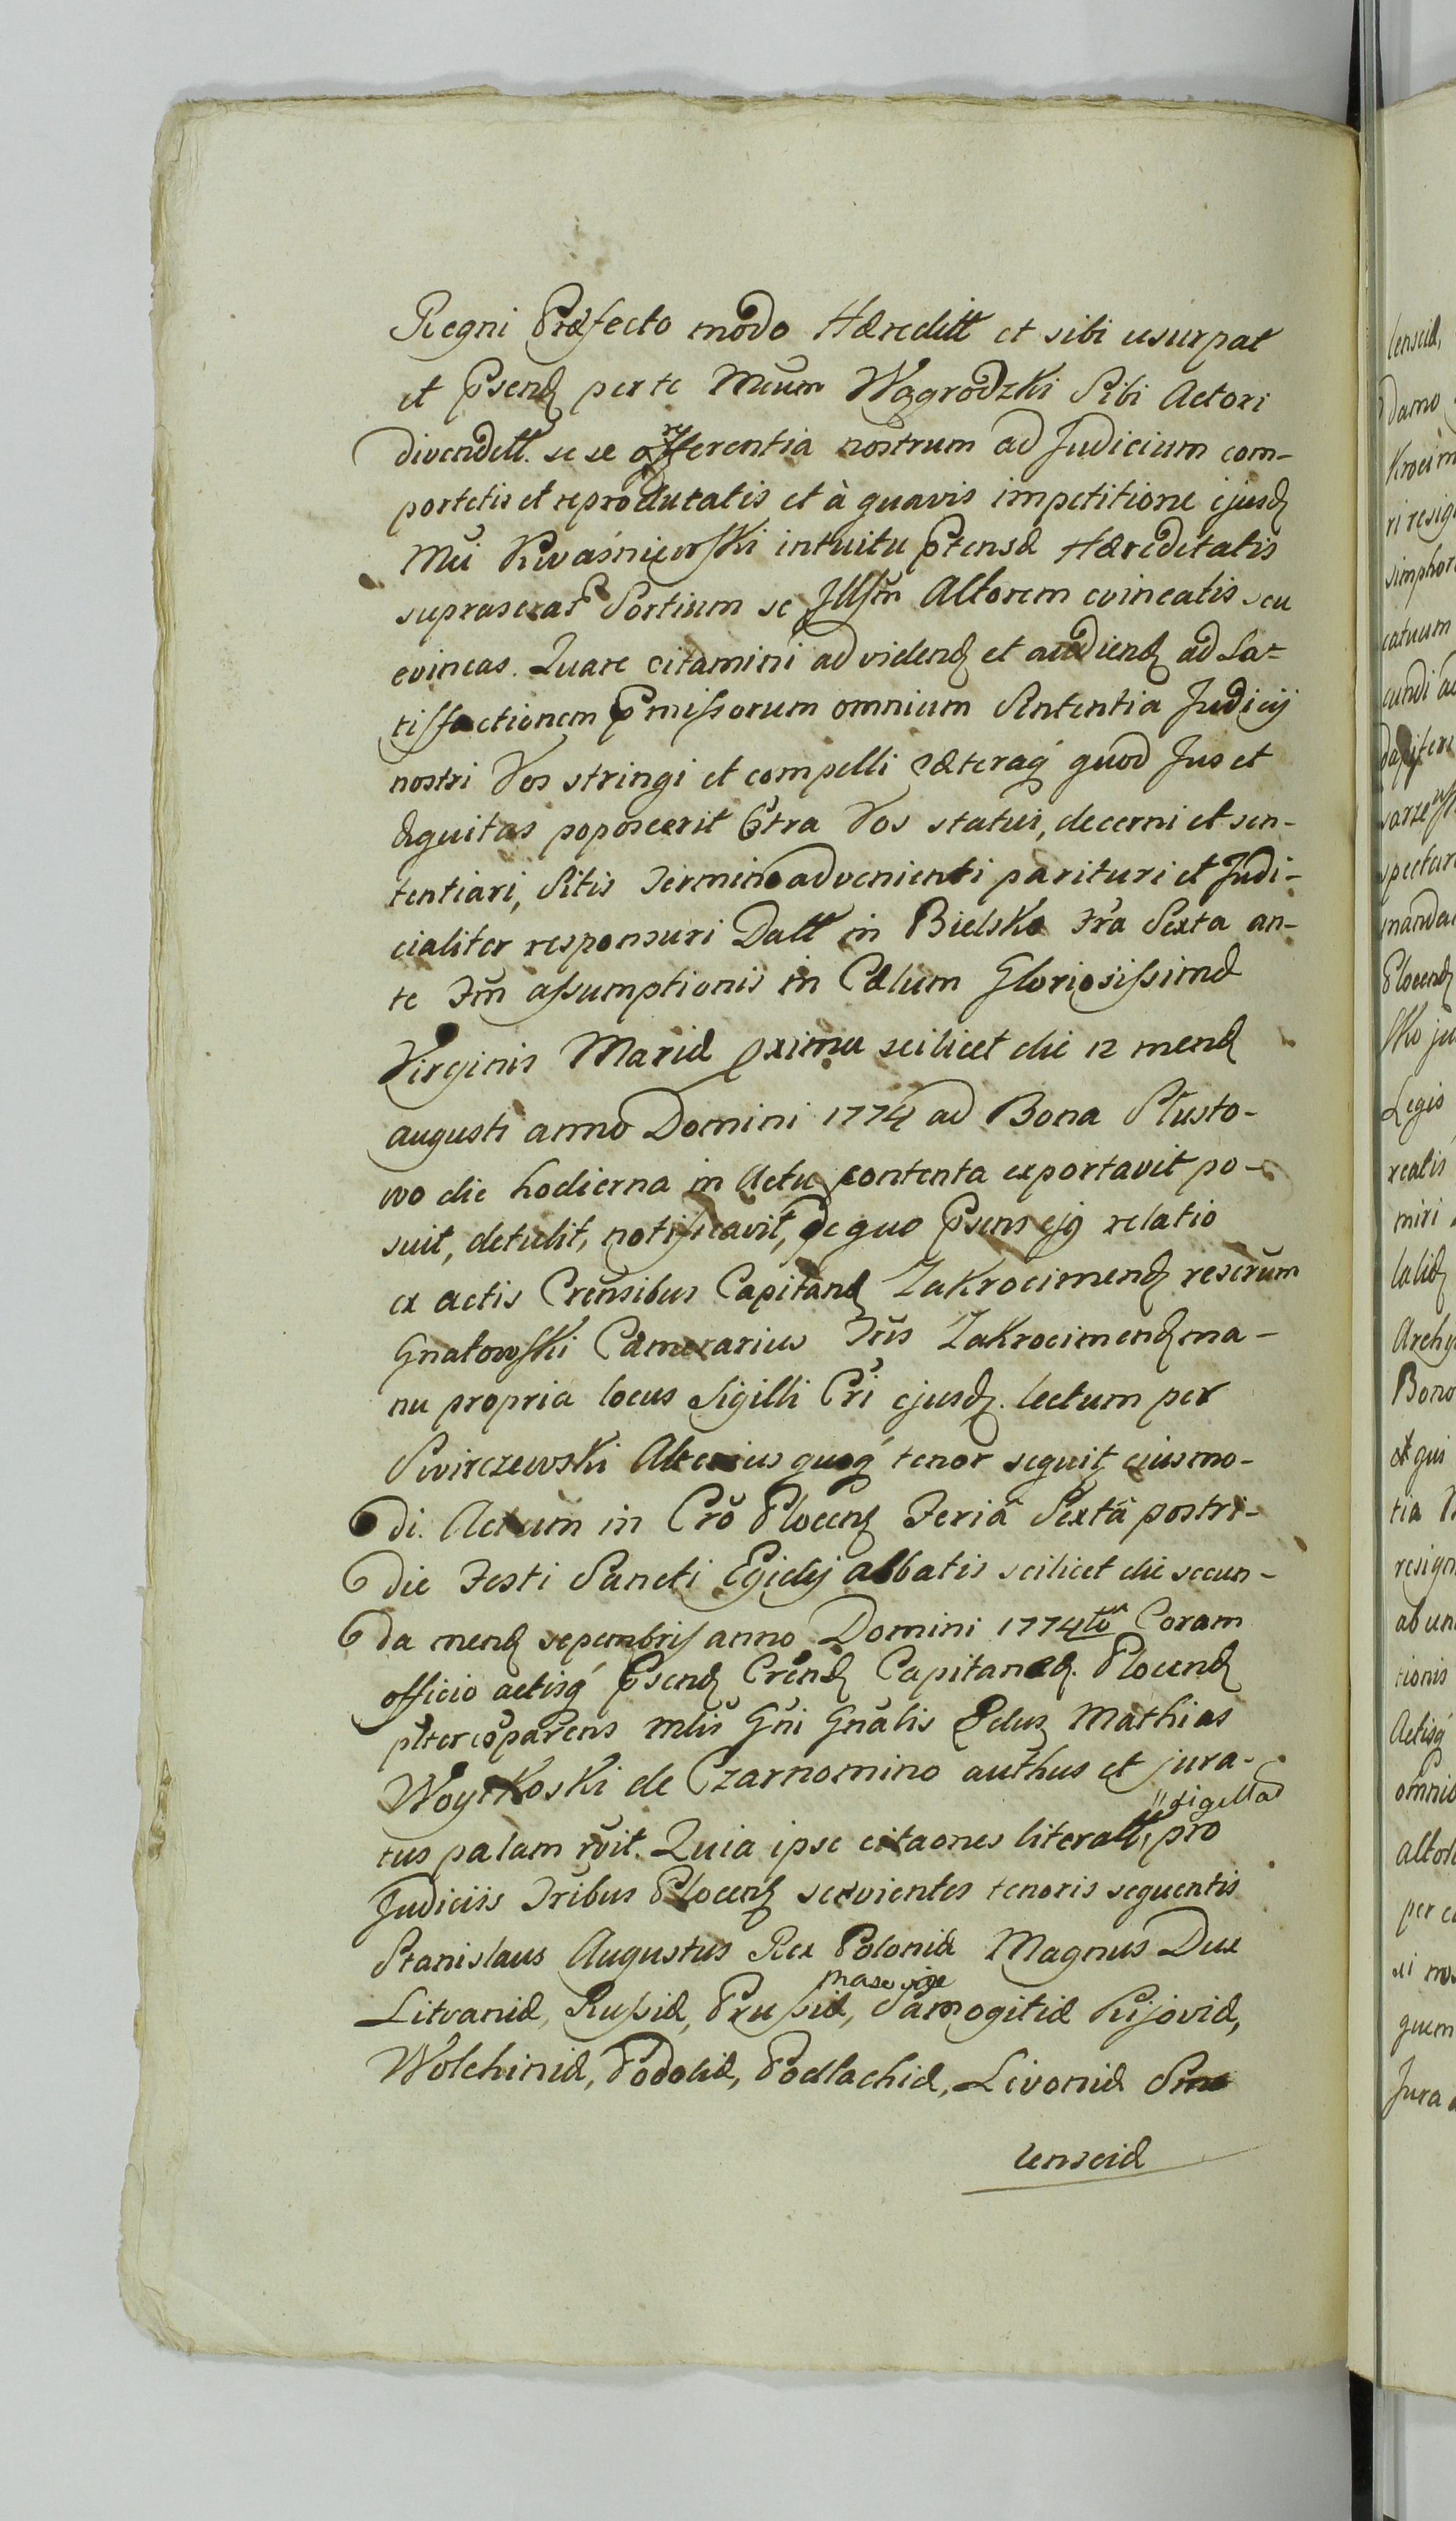 Regni Præfecto modo Hæreditt et sibi usurpat
et Psend per te Mcum Wągrodzki Sibi Actori
divendett. se se referentia nostrum ad Judicium com-
portetis et reproducatis et à quavis impetitione ejusd
Mci Kwaśniewski intuitu Ptensæ Hæreditatis
suprascrat Sortium se Illsm Actorem evincatis seu
evincas. Quare citamini ad vidend et audiend ad Sa-
tisfactionem Pmissorum omnium Sententia Judicij
nostri Vos stringi et compelli Cæteraq quod Jus et
Æquitas poposcerit Ctra Vos statui, decerni et sen-
tentiari, Sitis Termino advenienti parituri et Judi-
cialiter responsuri Datt in Bielsko Fra Sexta an-
te Fm assumptionis in Cælum Gloriosissimæ
Virginis Mariæ pxima scilicet die 12 mend
augusti anno Domini 1774 ad Bona Slusto-
wo die hodierna in Actu contenta exportavit po-
suit, detulit, notificavit, de quo Psens ejq relatio
ex actis Crensibus Capitand Zakrocimend rescrum
Gnatowski Camerarius Tris Zakrocimend ma-
nu propria locus Sigilli Cri ejusd. lectum per
Swirczewski Alterius quoq tenor sequit ejusmo-
di. Actum in Cro Plocend Feriâ Sextâ postri-
die Festi Sancti Egidij abbatis scilicet die secun-
da mend sepembris anno Domini 1774to Coram
officio actisq Psend Crend Capitaned. Plocend
plter coparens mlis Gni Gnalis Pdus Mathias
Woytkoski de Czarnomino authus et jura-
tus palam rvit. Quia ipse citaones literatt, sigillat
pro
Judiciis Tribus Plocend servientes tenoris sequentis
Stanislaus Augustus Rex Poloniæ Magnus Dux
Litvaniæ, Russiæ, Prussiæ, Masoviæ Samogitiæ Kijoviæ,
Wolchiniæ, Podoliæ, Podlachiæ, Livoniæ Smo
lensciæ